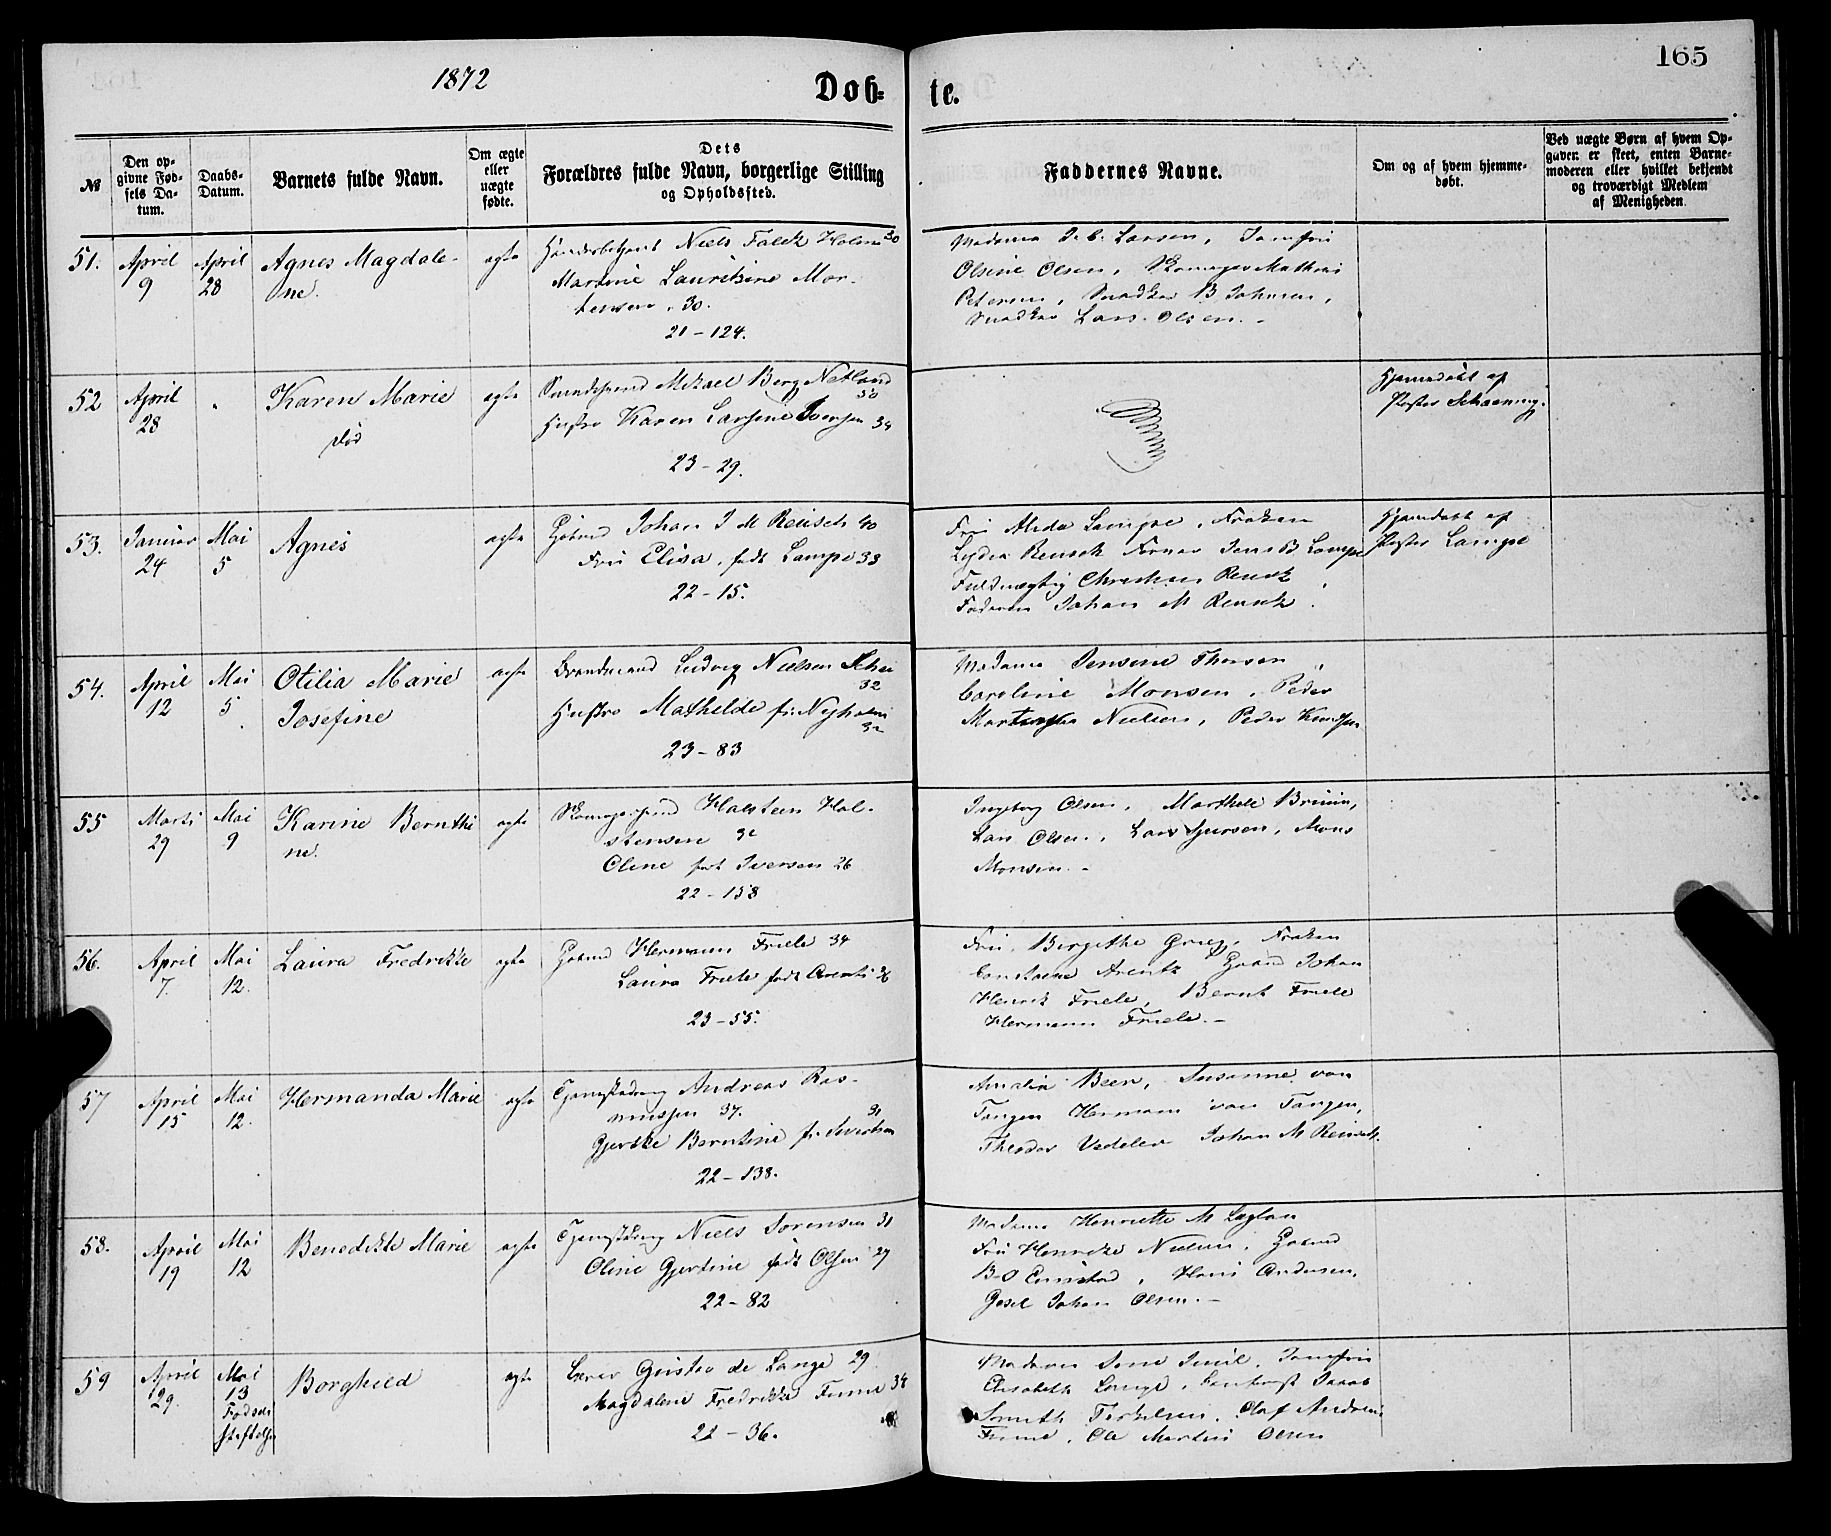 1872
Døb-
te.
165
№
Den op-
givne Fød-
sels Da-
tum.
Daabs-
Datum.
Barnets fulde Navn.
Om ægte
eller
uægte
fødte.
Dets
Forældres fulde Navn, borgerlige Stilling
og Opholdssted.
Faddernes Navne.
Om og af hvem hjemme-
døbt.
Ved uægte Børn af hvem Op-
gaven er skeet, enten Barne-
moderen eller hvilket bekjendt
og troværdigt Medlem
af Menigheden
51.
April
9
April
28
Agnes Magdale-
ne.
ægte
Niels Falck Holm 30
Martine Lauritzine Mor-
tensen. 30.
21-124.
Madame Larsen, Jomfru
Olsine Olsen, Skomager Mathias
Petersen, Snedker B Johnsen,
Snedker Lars Olsen. -
52
April
28
Karen Marie
død
ægte
Mikael Berg Netland
30
Hustro Karen Larsine Iversen 34
23-29.
Hjemmedøbt af
Pastor Schøening.
53.
Januar
24
Mai
5
Agnes
ægte
Johan J M Reusch 40
Fru Elisa, født Lampe 33
22-15.
Fru Alida Lampe, Frøken
Lydia Reusch Jens B Lampe
Fuldmægtig Christian Reusch
Faderen Johan M Reusch.
Hjemmedøbt af
Pastor Lampe
54.
April
12
Mai
5
Otilia Marie
Josefine
ægte
Brandmand Ludvig Nielsen
32
Hustro Mathilde
32
23-83
Madame Jensine Thorsen,
Caroline Monsen, Peder
Nielsen, Peder Knudsen
55
Marts
29
Mai
9
Karine Bernthi
ne.
ægte
Holsteen Hol-
stensen 32
Oline født Iversen 26
22-158
Ingeborg Olsen, Marthole Bruun,
Lars Olsen, Lars Sjursen, Mons
Monsen. -
56.
April
7.
Mai
12.
Laura Fredrikke
ægte
Hermann Friele 34
Laura Friele født Arentz 26
23-55.
Fru Birgithe Grieg, Frøken
Constance Arentz Johan
Henrik Friele, Bernt Friele
Hermann Friele. -
57
April
15
Mai
12.
Hermanda Marie
ægte
Andreas Ras-
mussen 37.
31
Gjertke Berntine
22-138.
Amalia Beer, Susanne von
Tangen Herman von Tangen,
Theodor Vedeler Johan M Reusch
58.
April
19
Mai
12
Benedikte Marie
ægte
Niels Sørensen 31
Oline Gjertine født Olsen 29
22-82
Madame Henriette M
Fru Nielsen,
Hans Andersen,
Johan Olsen. -
59
April
29.
Mai
13
Borghild
ægte
Gustav de Lange 29
Magdalene Fredrikke Finne 34
22-36.
Madame Jomfru
Elisabeth Lange, Jacob
Smith Terkelsen, Olaf Andreas
Finne, Ole Martin Olsen